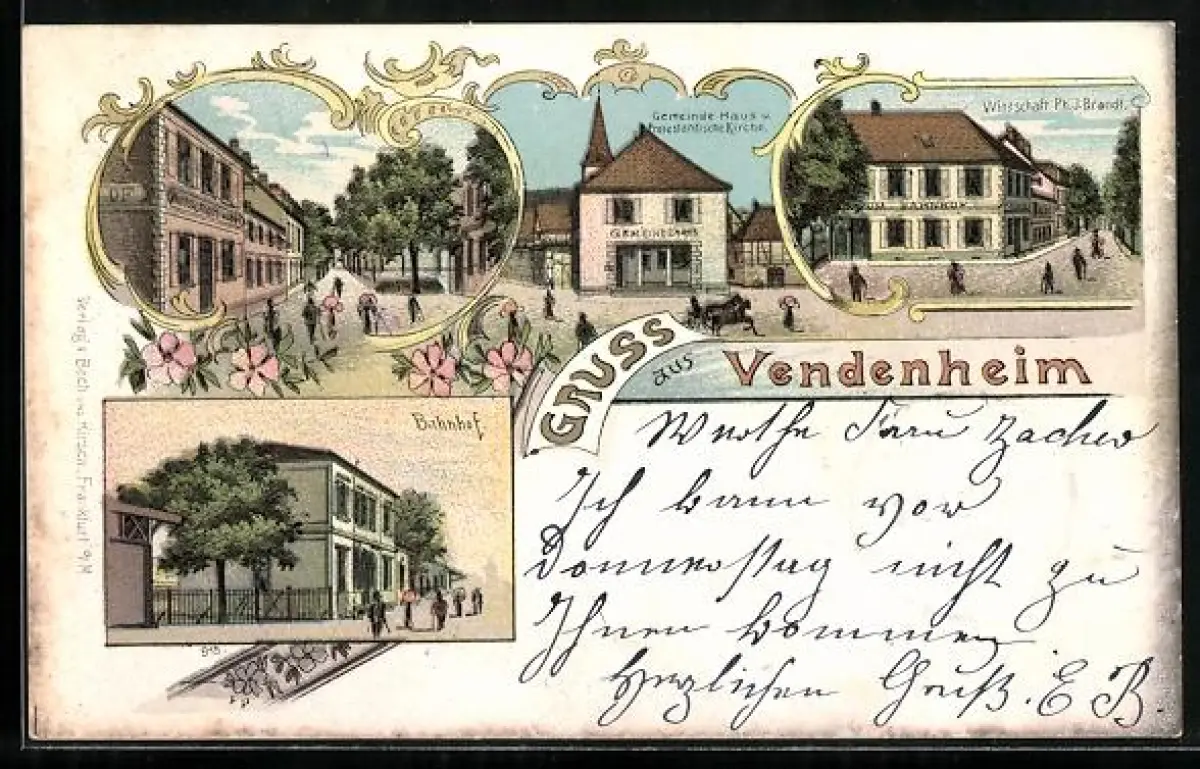 Gemeinde-Haus u.
Protestantische Kirche.
Wirtschaft Ph. J. Brandt.
GEMEINDEHAUS
ZUM BAHNHOF
GRUSS
aus
Vendenheim
Bahnhof
Werthe Frau Zacher
Ich kann vor
Donnerstag nicht zu
Ihnen kommen
Herzlichen Gruß. E B.
Verlag v. Bech und Kirsch, Frankfurt a/M